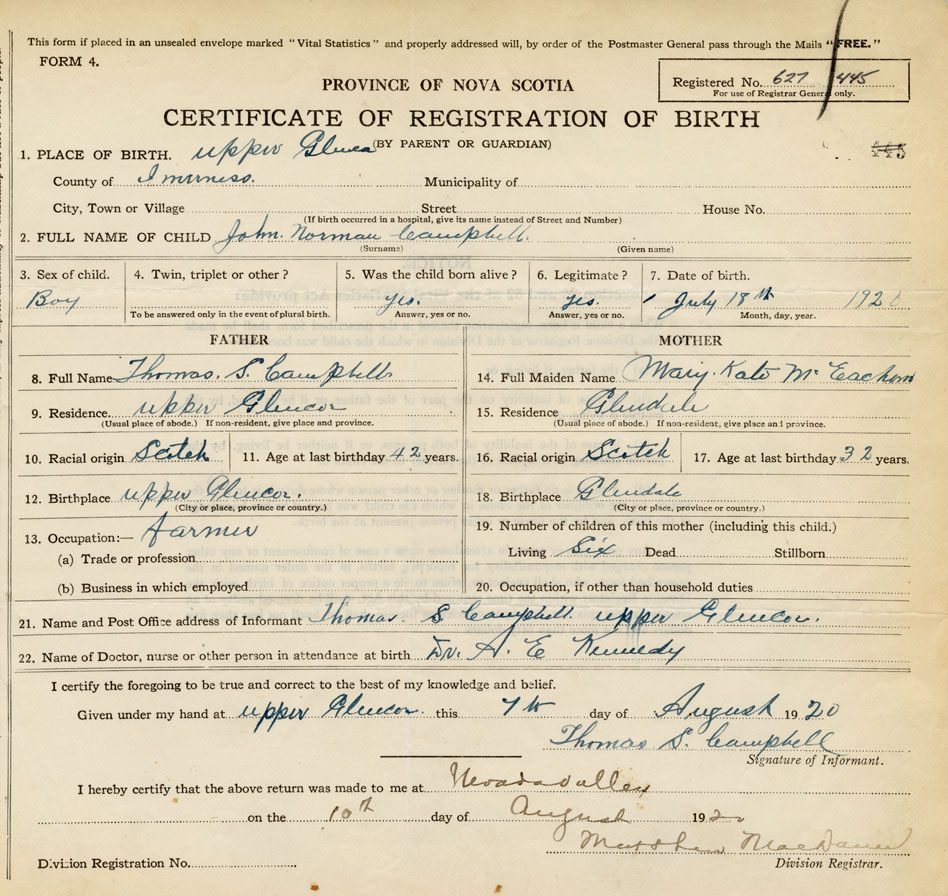 This form if placed in an unsealed envelope marked "Vital Statistics" and properly addressed will, by order of the Postmaster General pass through the Mails "FREE."
FORM 4.
Registered No. 627 445
For use of Registrar General only.
PROVINCE OF NOVA SCOTIA
CERTIFICATE OF REGISTRATION OF BIRTH
(BY PARENT OR GUARDIAN)
445
1. PLACE OF BIRTH. upper
County of Municipality of
City, Town or Village Street House No.
(If birth occurred in a hospital, give its name instead of Street and Number)
2. FULL NAME OF CHILD John. Norman Campbell.
(Surname) (Given name)
3. Sex of child. 4. Twin, triplet or other? 5. Was the child born alive? 6. Legitimate? 7. Date of birth.
Boy yes. yes. July 18th 192
To be answered only in the event of plural birth. Answer, yes or no. Answer, yes or no. Month, day, year.
FATHER MOTHER
8. Full Name Thomas. S. Campbell 14. Full Maiden Name Mary Kate
9. Residence. upper 15. Residence Glendale
(Usual place of abode.) If non-resident, give place and province. (Usual place of abode.) If non-resident, give place and province.
10. Racial origin Scotch 11. Age at last birthday 42 years. 16. Racial origin Scotch 17. Age at last birthday 32 years.
12. Birthplace upper 18. Birthplace Glendale
(City or place, province or country.) (City or place, province or country.)
13. Occupation:— farmer 19. Number of children of this mother (including this child.)
(a) Trade or profession Living Six Dead Stillborn
(b) Business in which employed 20. Occupation, if other than household duties
21. Name and Post Office address of Informant Thomas. S Campbell. upper
22. Name of Doctor, nurse or other person in attendance at birth Dr. A. E Kennedy
I certify the foregoing to be true and correct to the best of my knowledge and belief.
Given under my hand at upper this 7th day of August 1920
Thomas S. Campbell
Signature of Informant.
I hereby certify that the above return was made to me at
on the 10th day of August 1920
Division Registration No. Division Registrar.